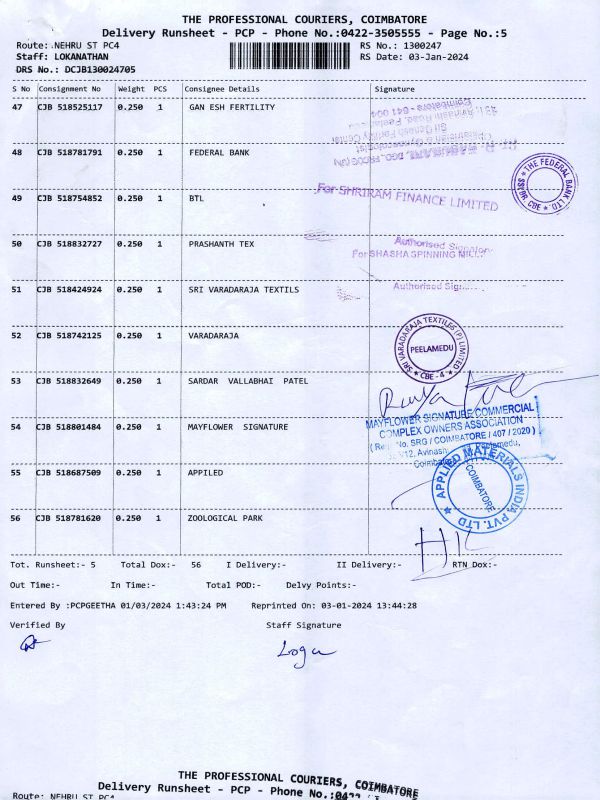 THE PROFESSIONAL COURIERS, COIMBATORE
Delivery Runsheet - PCP - Phone No.:0422-3505555 - Page No.:5
Route: NEHRU ST PC4 RS No.: 1300247
Staff: LOKANATHAN RS Date: 03-Jan-2024
DRS No.: DCJB130024705
S No Consignment No Weight PCS Consignee Details Signature
47 CJB 518525117 0.250 1 GAN ESH FERTILITY
48 CJB 518781791 0.250 1 FEDERAL BANK
THE FEDERAL BANK LTD
CBE
49 CJB 518754852 0.250 1 BTL
For SHRIRAM FINANCE LIMITED
50 CJB 518832727 0.250 1 PRASHANTH TEX
Authorised Signatory
For SHASHA SPINNING MILL
51 CJB 518424924 0.250 1 SRI VARADARAJA TEXTILS
Authorised Sig
52 CJB 518742125 0.250 1 VARADARAJA
SRI VARADARAJA TEXTILES (P) LIMITED
PEELAMEDU
CBE - 4
53 CJB 518832649 0.250 1 SARDAR VALLABHAI PATEL
54 CJB 518801484 0.250 1 MAYFLOWER SIGNATURE
MAYFLOWER SIGNATURE COMMERCIAL
COMPLEX OWNERS ASSOCIATION
No. SRG / COIMBATORE / 407 / 2020 )
55 CJB 518687509 0.250 1 APPILED
APPLIED MATERIALS INDIA PVT. LTD
COIMBATORE
56 CJB 518781620 0.250 1 ZOOLOGICAL PARK
Tot. Runsheet:- 5 Total Dox:- 56 I Delivery:- II Delivery:- RTN Dox:-
Out Time:- In Time:- Total POD:- Delvy Points:-
Entered By :PCPGEETHA 01/03/2024 1:43:24 PM Reprinted On: 03-01-2024 13:44:28
Verified By Staff Signature
Logu
THE PROFESSIONAL COURIERS, COIMBATORE
Delivery Runsheet - PCP - Phone No.:0422
Route: NEHRU ST PC4